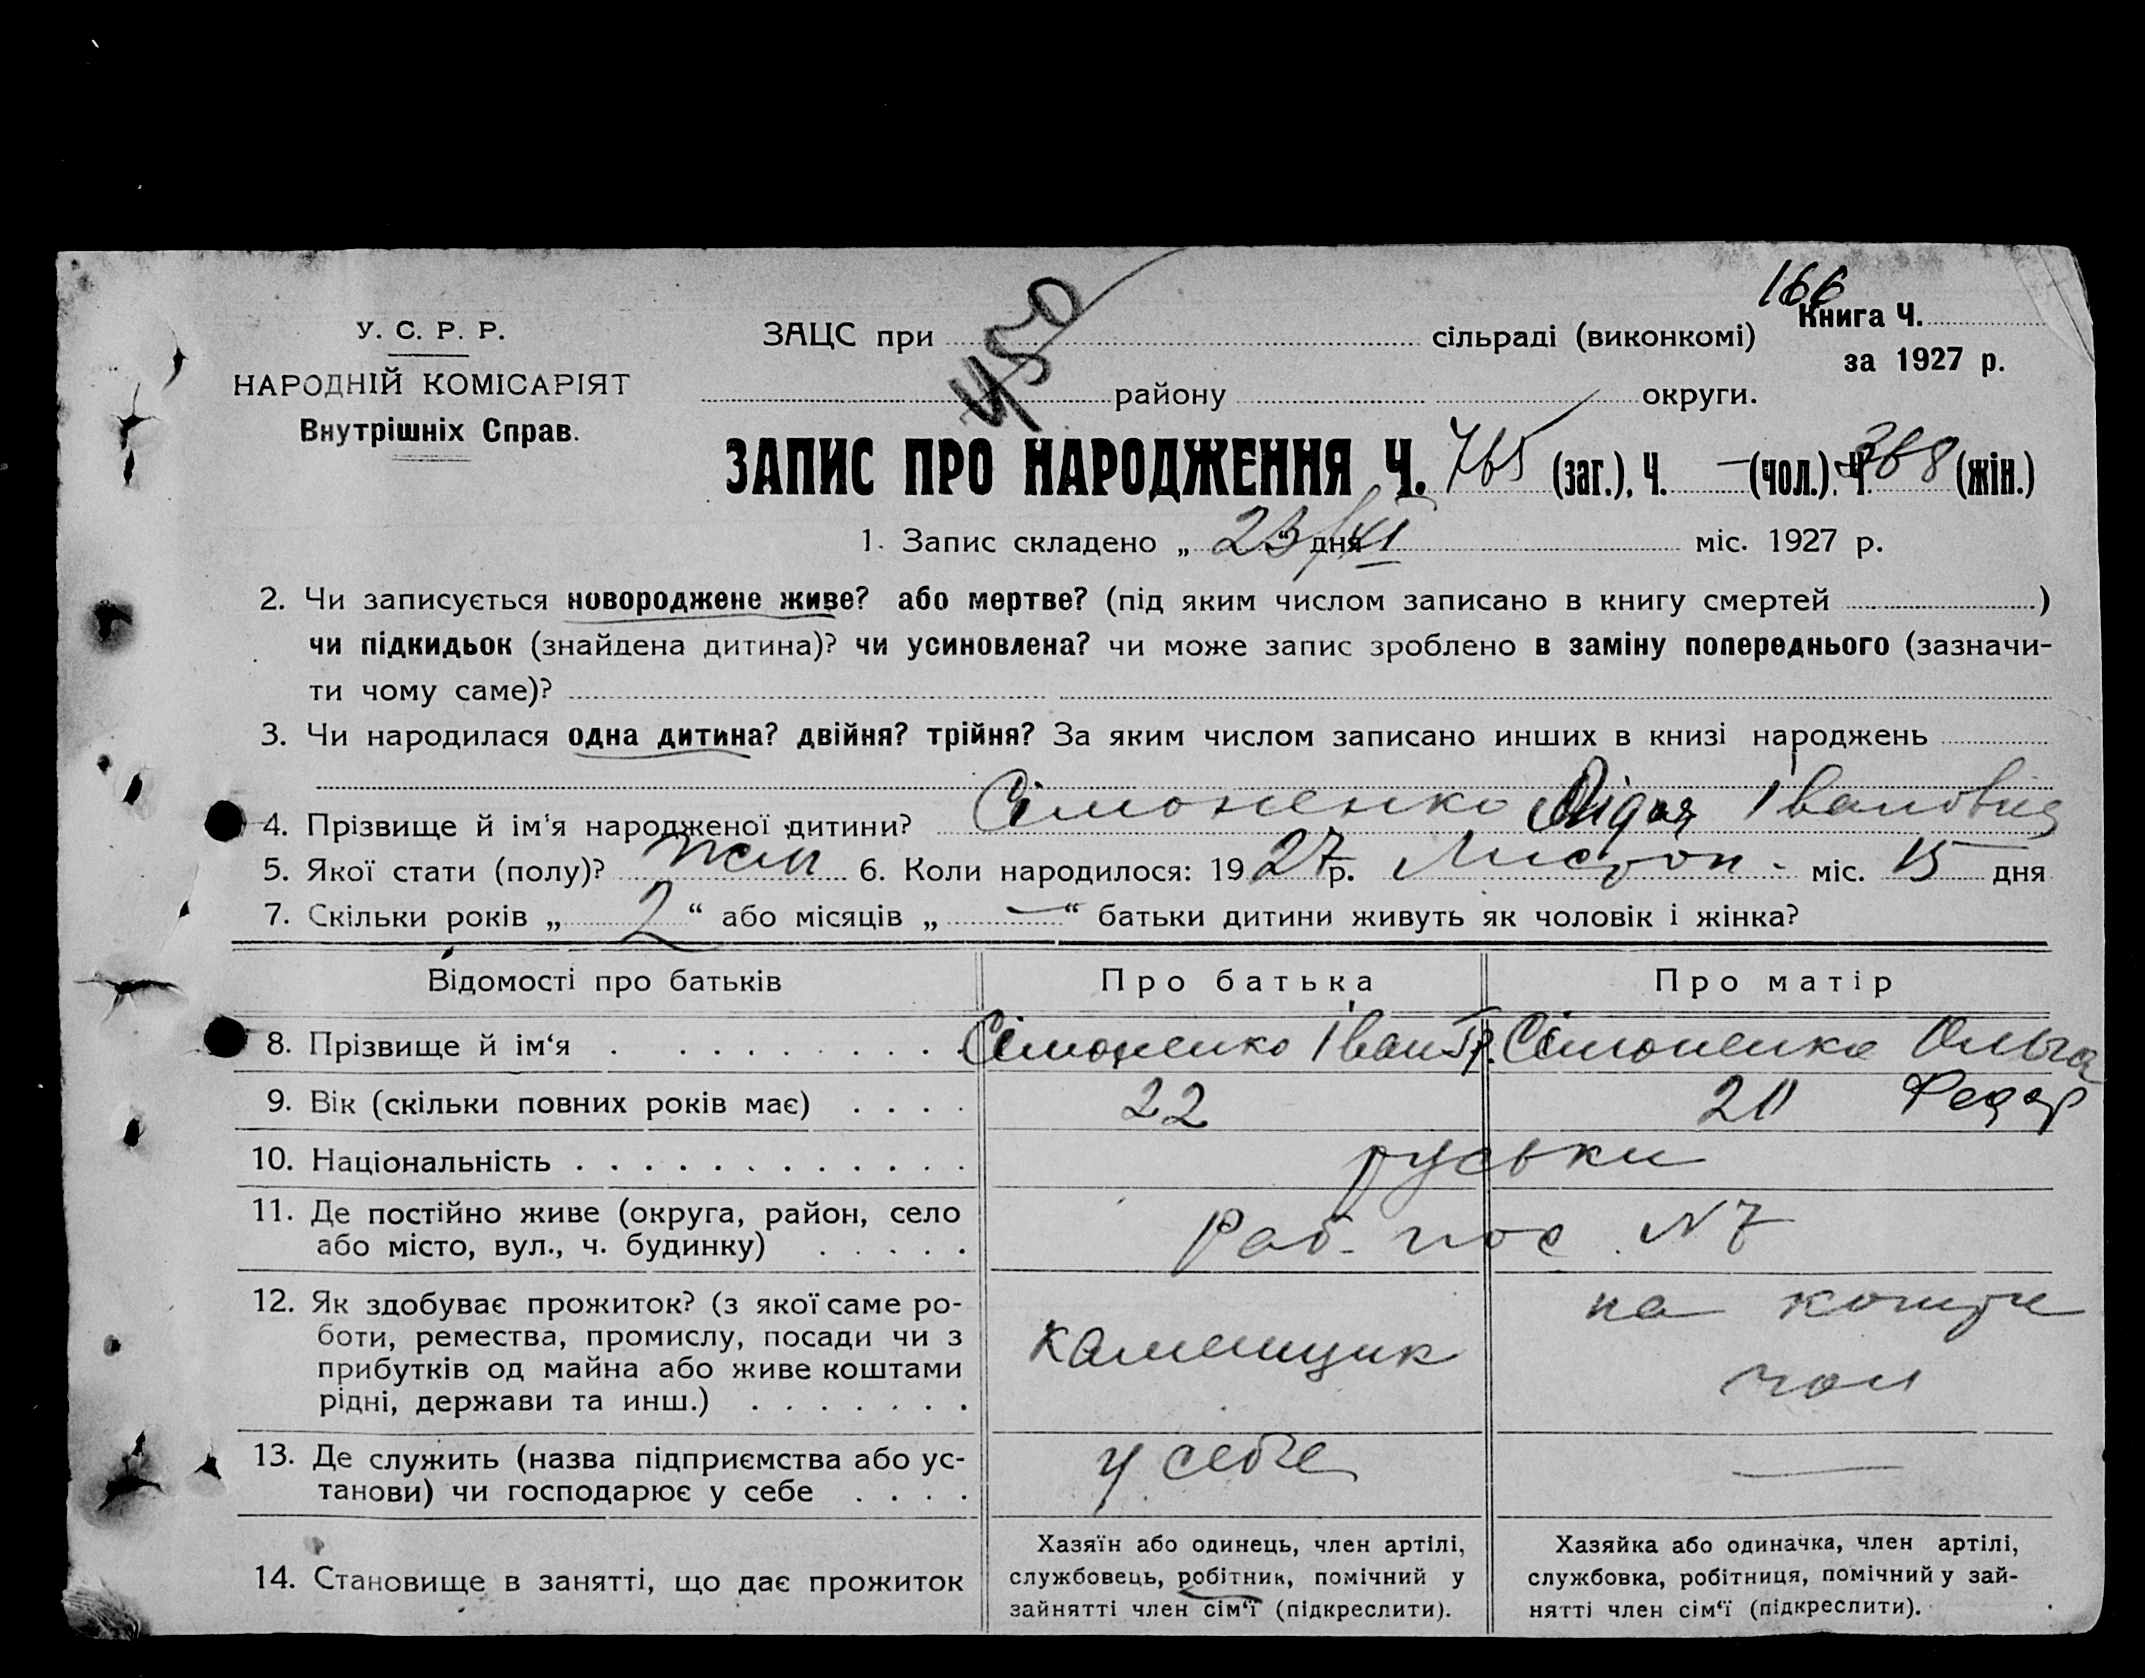 166
450
У. С. Р. Р.
НАРОДНІЙ КОМІСАРІЯТ
Внутрішніх Справ.
ЗАЦС при ... сільраді (виконкомі)
Книга Ч.
за 1927 р.
району ... округи.
ЗАПИС ПРО НАРОДЖЕННЯ Ч. 765 (заг.), Ч. — (чол.), Ч. 368 (жін.)
1. Запис складено „ 23 “ дня XI міс. 1927 р.
2. Чи записується новороджене живе? або мертве? (під яким числом записано в книгу смертей ...)
чи підкидьок (знайдена дитина)? чи усиновлена? чи може запис зроблено в заміну попереднього (зазначи-
ти чому саме)?
3. Чи народилася одна дитина? двійня? трійня? За яким числом записано инших в книзі народжень
4. Прізвище й ім'я народженої дитини? Сімоненко Лідія Івановна
5. Якої статі (полу)? жін 6. Коли народилося: 1927 р. Листоп - міс. 15 дня
7. Скільки років „ 2 “ або місяців „ — “ батьки дитини живуть як чоловік і жінка?
Відомості про батьків Про батька Про матір
8. Прізвище й ім‘я Сімоненко Іван Гр. Сімоненко Ольга
Федор
9. Вік (скільки повних років має) 22 20
10. Національність руськи
11. Де постійно живе (округа, район, село
або місто, вул., ч. будинку) Раб. пос. N 7
12. Як здобуває прожиток? (з якої саме ро-
боти, ремества, промислу, посади чи з
прибутків од майна або живе коштами
рідні, держави та инш.)
каменщик
на кошти
чол
13. Де служить (назва підприємства або ус-
танови) чи господарює у себе
у себе —
14. Становище в занятті, що дає прожиток
Хазяїн або одинець, член артілі,
службовець, робітник, помічний у
зайнятті член сім‘ї (підкреслити).
Хазяйка або одиначка, член артілі,
службовка, робітниця, помічний у зай-
нятті член сім‘ї (підкреслити).